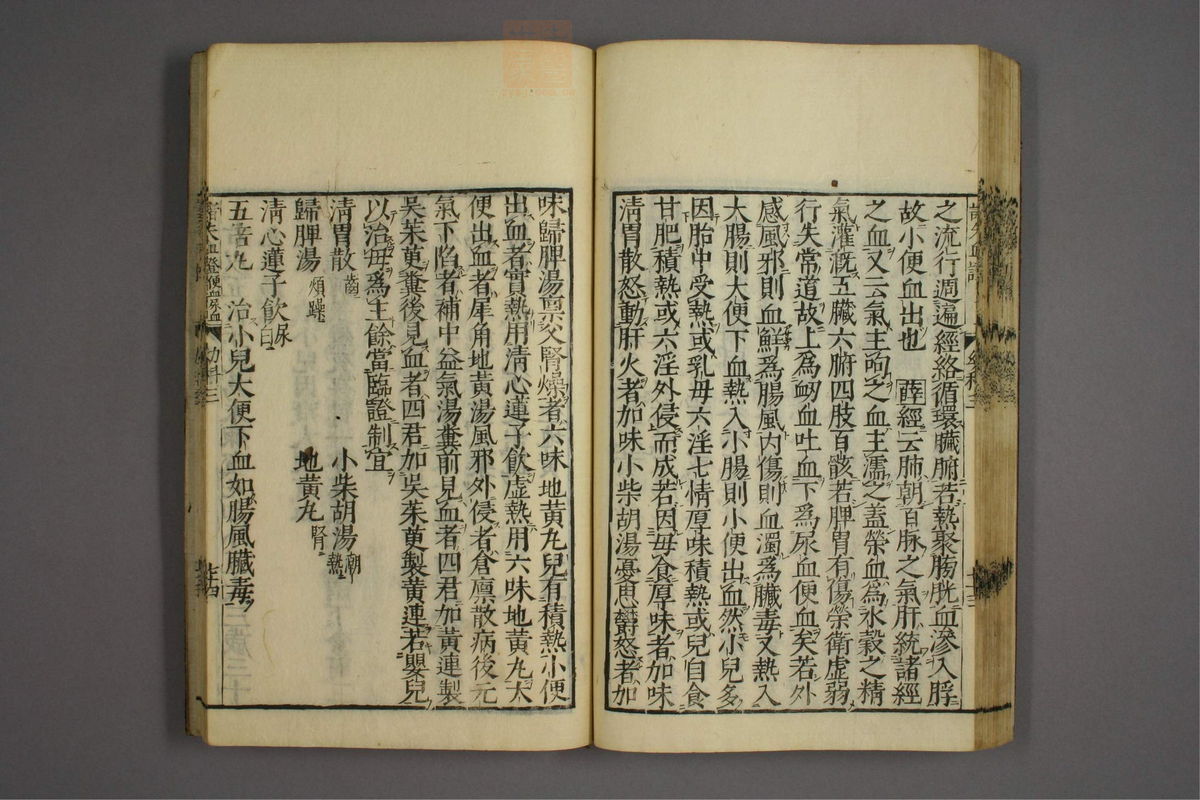 之流行週遍經絡循環臟腑若熱聚膀胱血滲入脬
故小便血出也 薛經云肺朝百脉之氣肝統諸經
之血又云氣主呴之血主濡之蓋榮血爲水穀之精
氣灌漑五臟六腑四肢百骸若脾胃有傷榮衛虛弱
行失常道故上爲衂血吐血下爲尿血便血矣若外
感風邪則血鮮爲腸風内傷則血濁爲臟毒又熱入
大腸則大便下血熱入小腸則小便出血然小兒多
因胎中受熱或乳母六淫七情厚味積熱或兒自食
甘肥積熱或六淫外侵而成若因母食厚味者加味
清胃散怒動肝火者加味小柴胡湯憂思欝怒者加
味歸脾湯禀父腎燥者六味地黄丸兒有積熱小便
出血者實熱用清心蓮子飲虛熱用六味地黄丸大
便出血者犀角地黄湯風邪外侵者倉廪散病後元
氣下陷者補中益氣湯糞前見血者四君加黄連製
吴茱萸糞後見血者四君加吴茱萸製黄連若嬰兒
以治母爲主餘當臨證制宜
清胃散 齒 小柴胡湯 潮熱
歸脾湯 煩躁 地黄丸 腎
清心蓮子飲 尿白
五苓丸 治小兒大便下血如腸風臟毒
幼科三